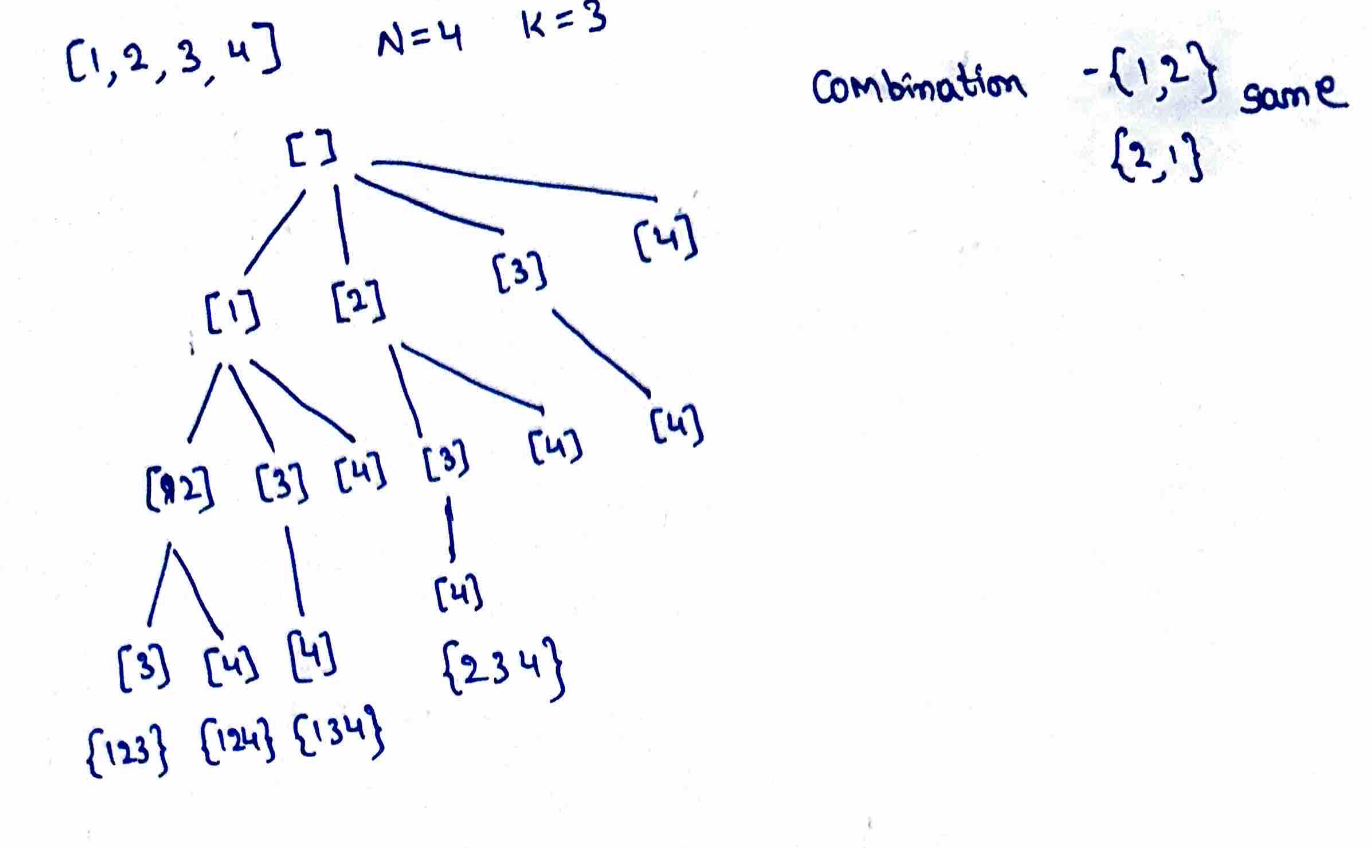 [1,2,3,4] N=4 K=3
Combination -{1,2} same
{2,1}
[]
[1] [2] [3] [4]
[2] [3] [4] [3] [4] [4]
[3] [4] [4] [4]
{123} {124} {134} {234}